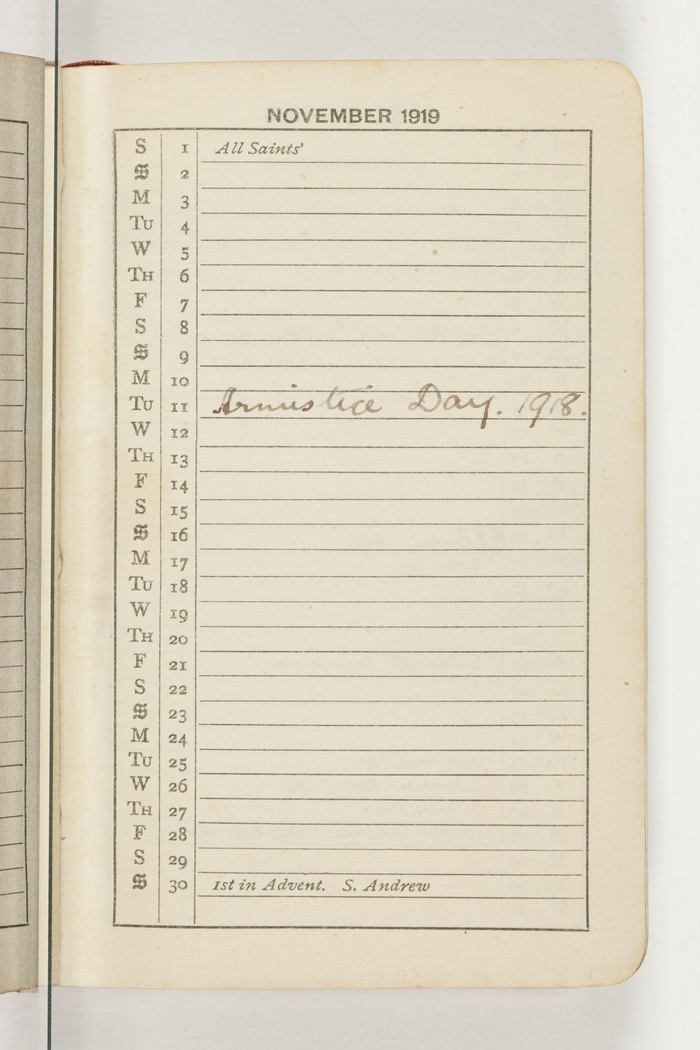 NOVEMBER 1919
S 1 All Saints'
S 2
M 3
Tu 4
W 5
Th 6
F 7
S 8
S 9
M 10
Tu 11 Armistice Day. 1918.
W 12
Th 13
F 14
S 15
S 16
M 17
Tu 18
W 19
Th 20
F 21
S 22
S 23
M 24
Tu 25
W 26
Th 27
F 28
S 29
S 30 1st in Advent. S. Andrew